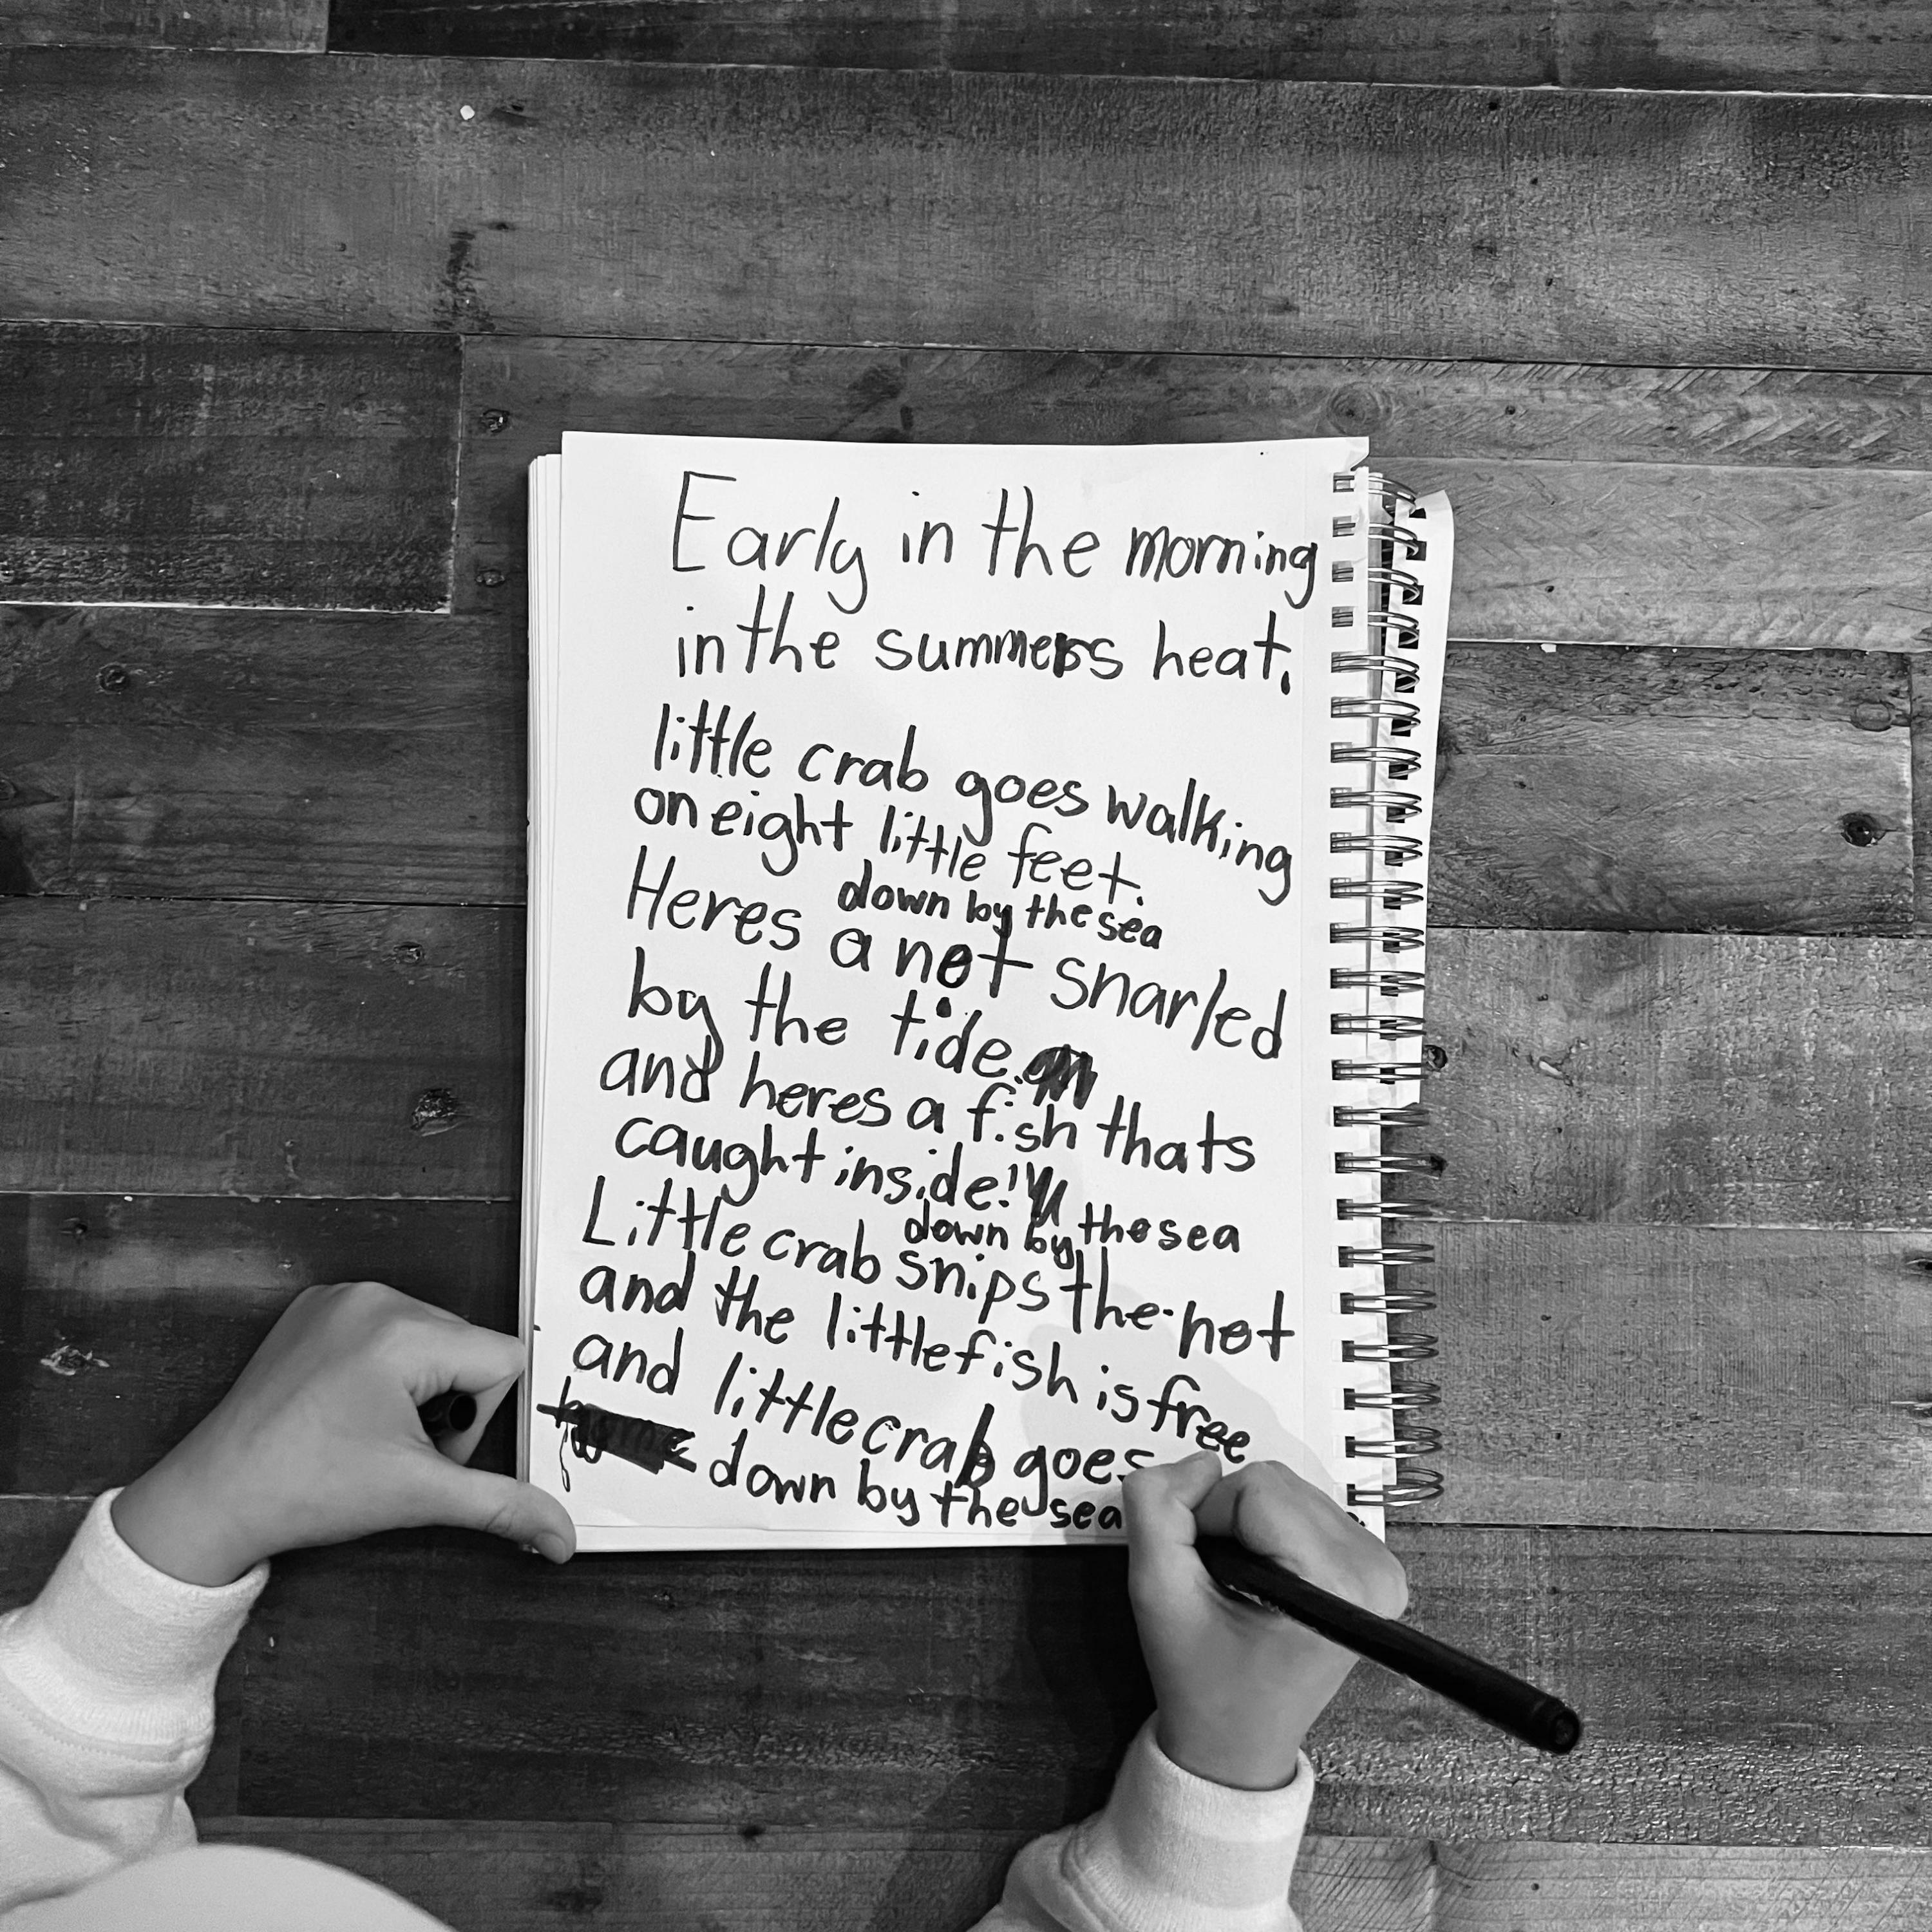 Early in the morning
in the summers heat.
little crab goes walking
on eight little feet.
down by the sea
Heres a net snarled
by the tide.
and heres a fish thats
caught inside!
down by the sea
Little crab snips the net
and the little fish is free
and little crab goes
down by the sea